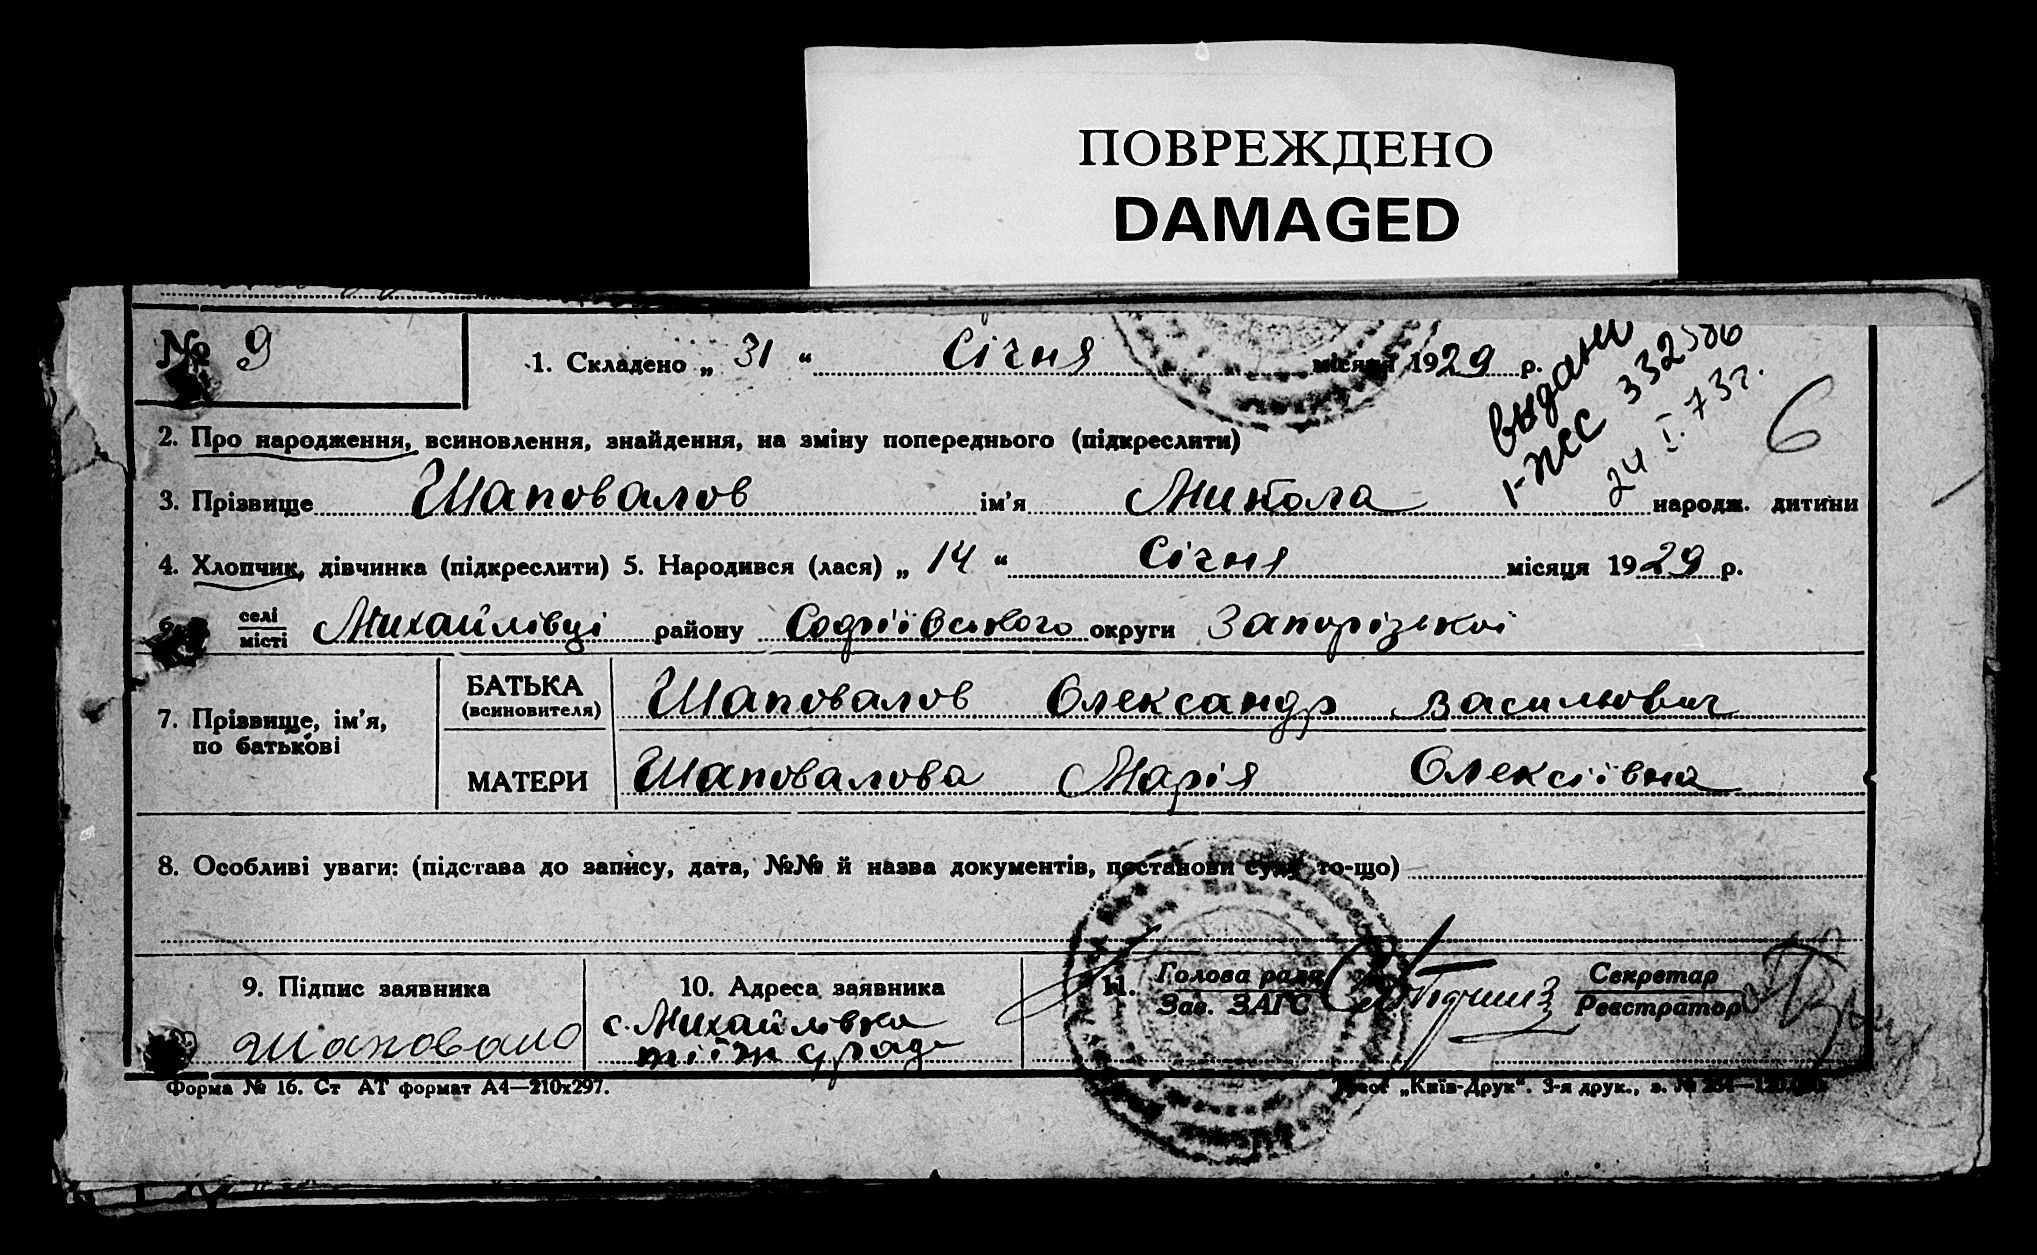 ПОВРЕЖДЕНО
DAMAGED
№ 9
1. Складено „ 31 “ Січня місяця 1929 р.
выдано
1-ЖС 332506
24 I. 73г.
6
2. Про народження, всиновлення, знайдення, на зміну попереднього (підкреслити)
3. Прізвище Шаповалов ім’я Микола народж. дитини
4. Хлопчик, дівчинка (підкреслити) 5. Народився (лася) „ 14 “ Січня місяця 1929 р.
6. селі
місті Михайлівці району Софіївського округи Запорізької
7. Прізвище, ім’я,
по батькові
БАТЬКА
(всиновителя) Шаповалов Олександр Васильович
МАТЕРИ Шаповалова Марія Олексіївна
8. Особливі уваги: (підстава до запису, дата, №№ й назва документів, постанови суду то-що)
9. Підпис заявника
Шаповало
10. Адреса заявника
с. Михайлівка
11. Голова ради
Зав. ЗАГС
Секретар
Реєстратор
Форма № 16. Ст АТ формат А4—210х297.
„Київ-Друк“. 3-я друк., з. №